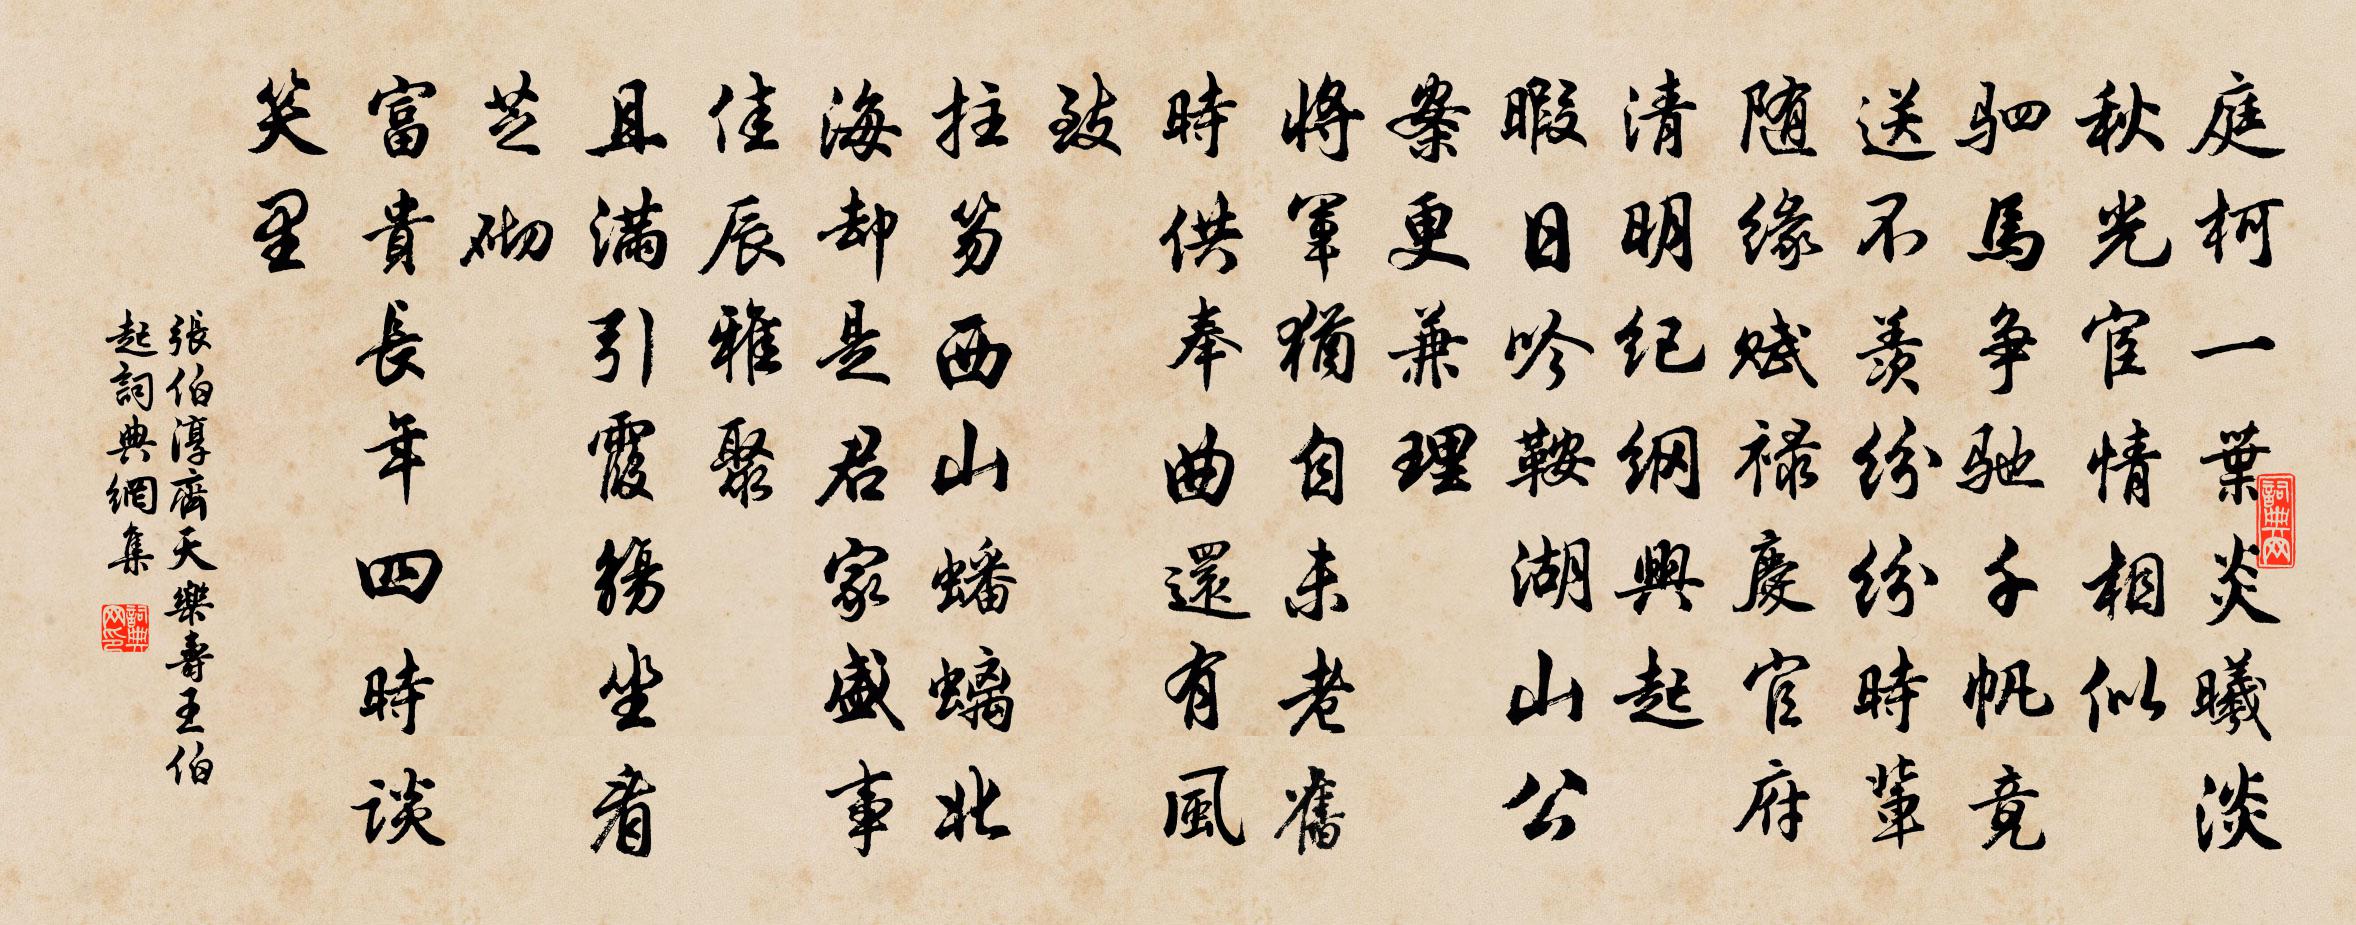 庭柯一葉炎曦淡
秋光宦情相似
驷馬爭馳千帆竟
送不羨紛紛時輩
随緣赋禄慶官府
清明纪纲興起
暇日吟鞍湖山公
案更兼理
將軍猶自未老舊
時供奉曲還有風
致
拄笏西山蟠螭北
海却是君家盛事
佳辰雅聚
且满引霞觴坐看
芝砌
富貴長年四時談
笑里
張伯淳齊天樂壽王伯
起詞典網集
詞典网
詞典网印